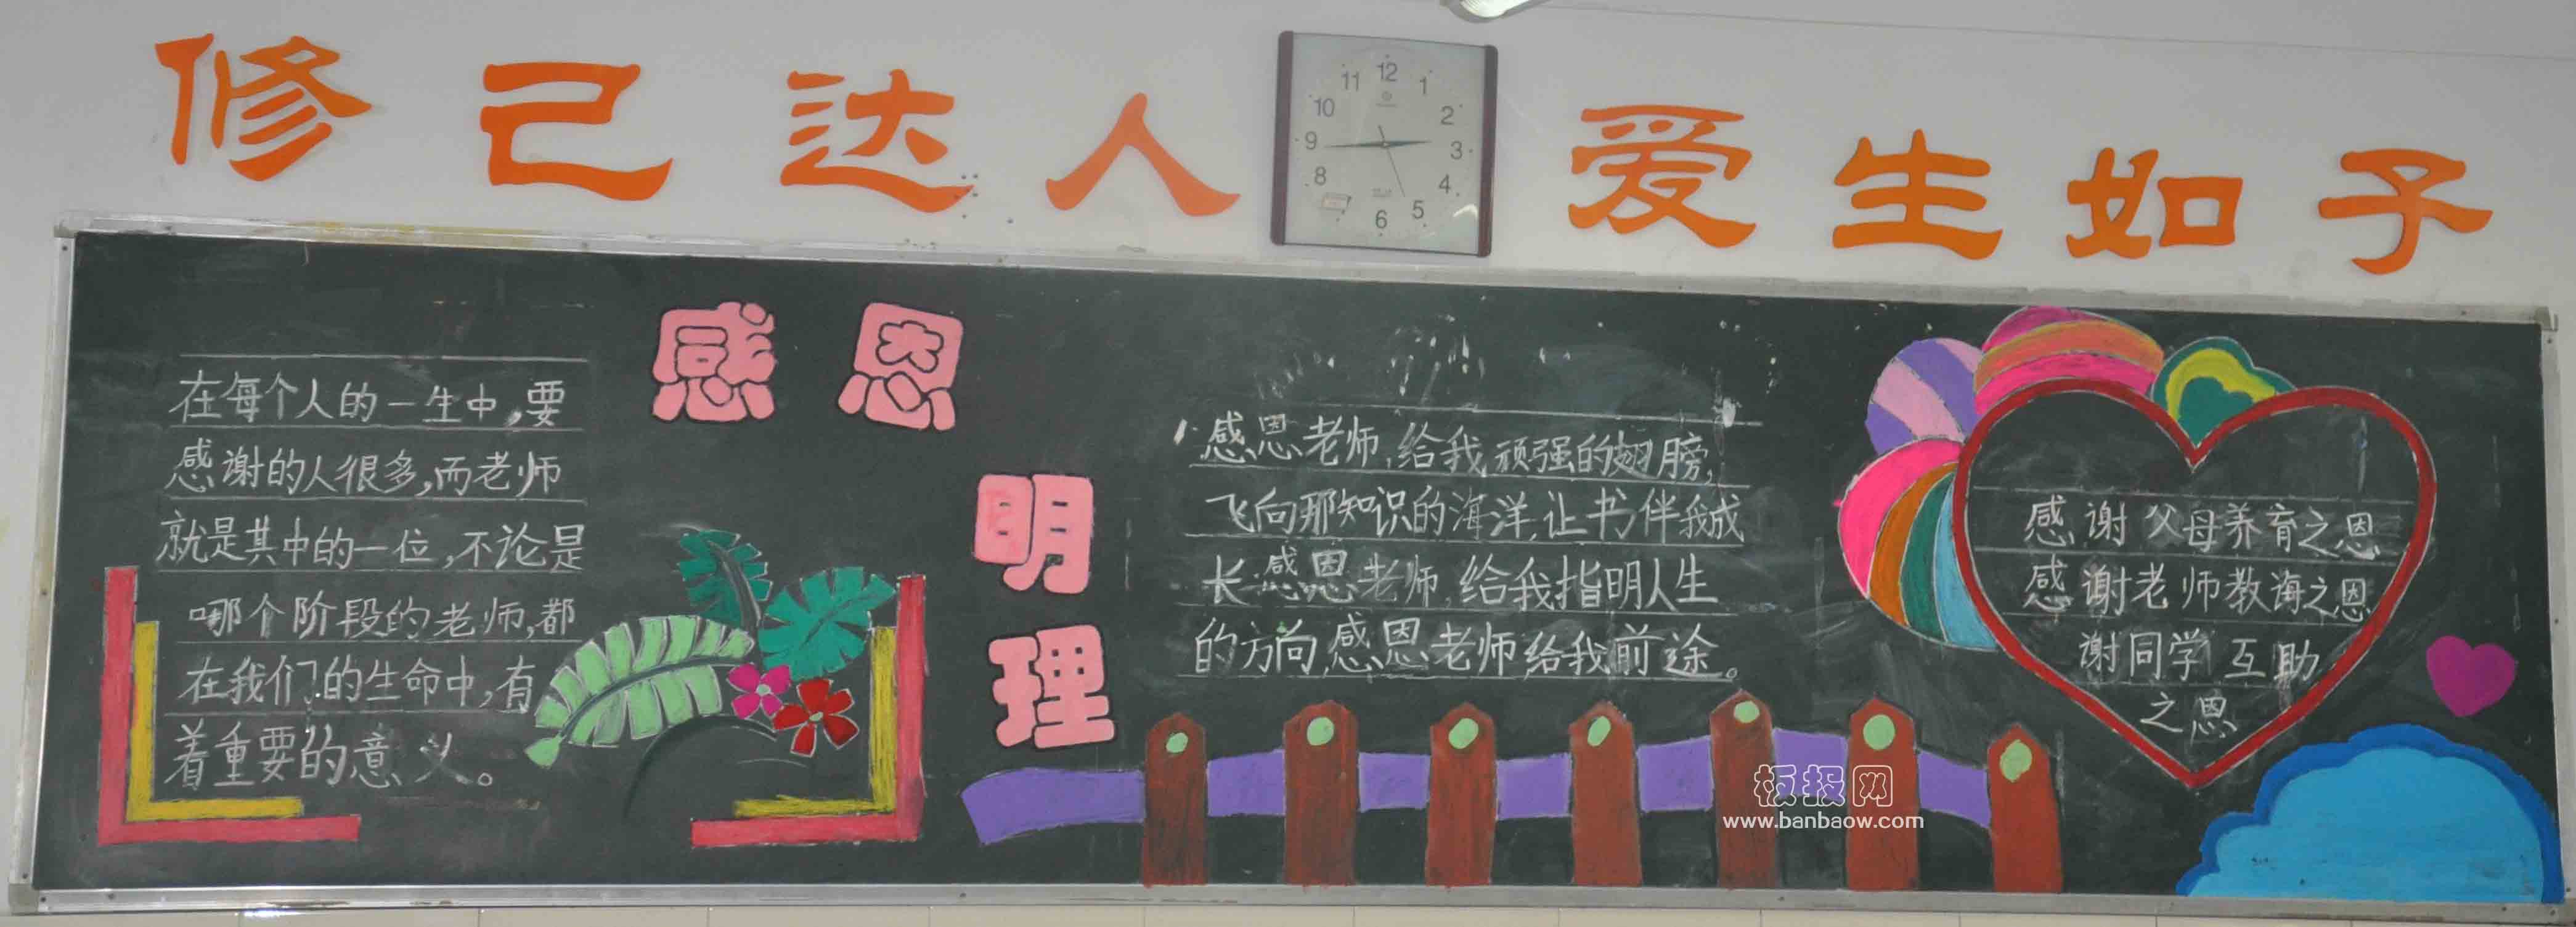 修己达人 爱生如子
感恩
明理
在每个人的一生中,要
感谢的人很多,而老师
就是其中的一位,不论是
哪个阶段的老师,都
在我们的生命中,有
着重要的意义。
感恩老师,给我顽强的翅膀,
飞向那知识的海洋,让书伴我成
长.感恩老师,给我指明人生
的方向,感恩老师给我前途。
感谢父母养育之恩
感谢老师教海之恩
谢同学互助
之恩
12
1
2
3
4
5
6
8
9
10
11
板报网
www.banbaow.com